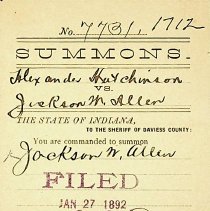 No. 7731, 1712
SUMMONS.
Alexander Hutchinson
VS.
Jackson W. Allen
THE STATE OF INDIANA,
TO THE SHERIFF OF DAVIESS COUNTY:
You are commanded to summon
Jackson W. Allen
FILED
JAN 27 1892